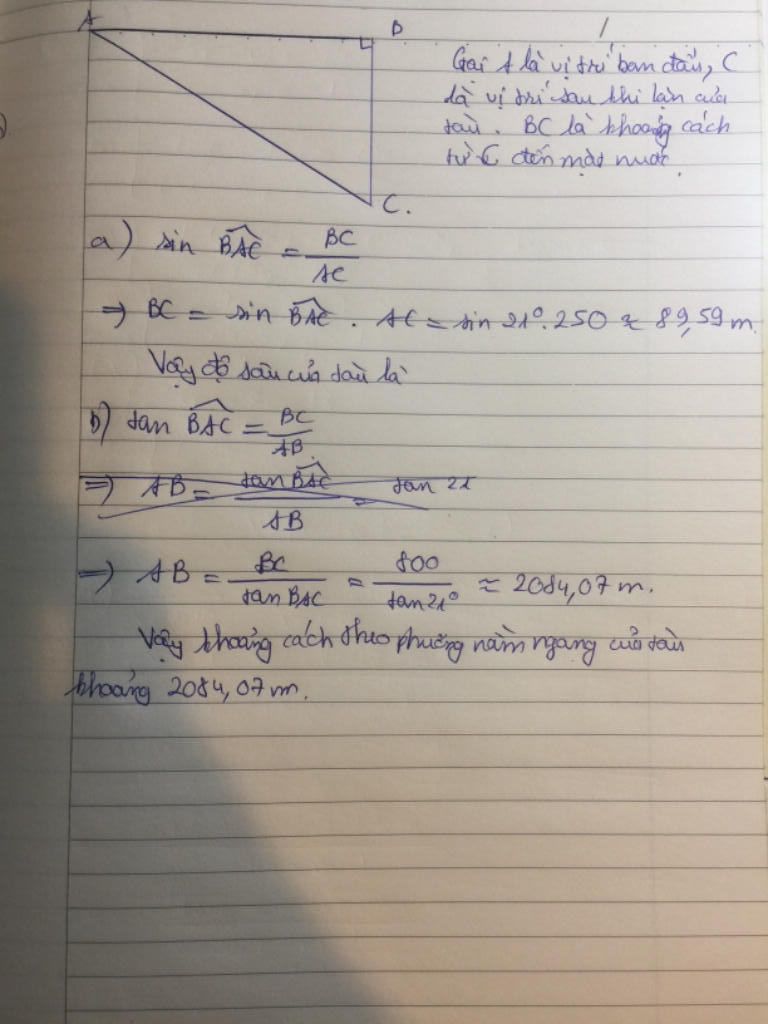 A B
Gọi A là vị trí ban đầu, C
là vị trí sau khi lặn của
tàu. BC là khoảng cách
từ C đến mặt nước.
C.
a) sin BAC = BC / AC
=> BC = sin BAC . AC = sin 21° . 250 ≈ 89,59 m.
Vậy độ sâu của tàu là
b) tan BAC = BC / AB
=> AB = tan BAC / AB = tan 21
=> AB = BC / tan BAC = 800 / tan 21° ≈ 2084,07 m.
Vậy khoảng cách theo phương nằm ngang của tàu
khoảng 2084,07 m.